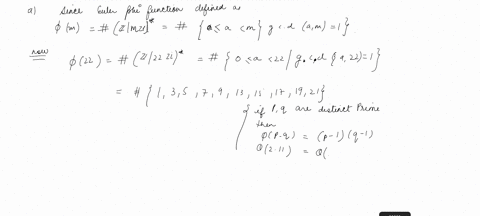 a) Since Euler phi function defined as
ϕ(m) = # (Z/mZ)* = # {0≤a<m} g.c.d (a,m)=1}
now
ϕ(22) = # (Z/22Z)* = # {0≤a<22/g.c.d (a,22)=1}
= # {1,3,5,7,9,13,15,17,19,21}
if P,q are distinct Prime
then
ϕ(P.q) = (p-1)(q-1)
ϕ(2.11) = ϕ(